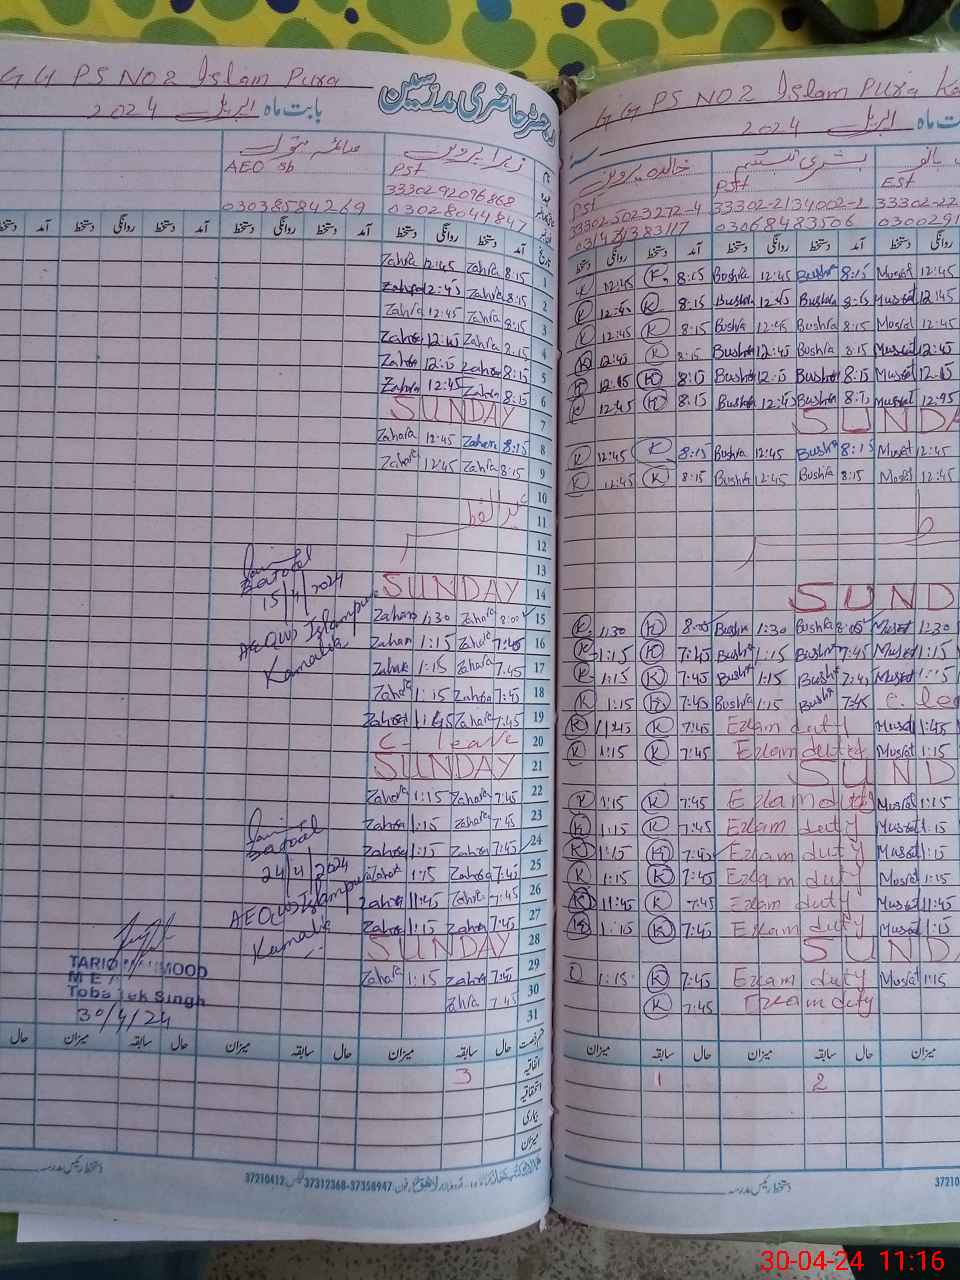 G G PS NO2 Islam Pura
رجسٹر حاضری مدرسین
بابت ماہ اپریل 2024
AEO sb
03038584269
زہرا پروین
PST
33302 92096868
03028044847
تاریخ آمد دستخط روانگی دستخط آمد دستخط روانگی دستخط آمد
1 8:15 Zahra 12:45 Zahra
2 8:15 Zahra 12:45 Zahra
3 8:15 Zahra 12:45 Zahra
4 8:15 Zahra 12:45 Zahra
5 8:15 Zahra 12:45 Zahra
6 8:15 Zahra 12:45 Zahra
7 SUNDAY
8 8:15 Zahra 12:45 Zahra
9 8:15 Zahra 12:45 Zahra
10
11 عید الفطر
12
13
14 SUNDAY
15 8:00 Zahra 1:30 Zahra
16 7:45 Zahra 1:15 Zahra
17 7:45 Zahra 1:15 Zahra
18 7:45 Zahra 1:15 Zahra
19 7:45 Zahra 11:45 Zahra
20 C-leave
21 SUNDAY
22 7:45 Zahra 1:15 Zahra
23 7:45 Zahra 1:15 Zahra
24 7:45 Zahra 1:15 Zahra
25 7:45 Zahra 1:15 Zahra
26 7:45 Zahra 11:45 Zahra
27 7:45 Zahra 1:15 Zahra
28 SUNDAY
29 7:45 Zahra 1:15 Zahra
30 7:45 Zahra
31
Batool
15/4/2024
AEO(W) Islampura
Kamalia
Batool
24/4/2024
AEO(W) Islampura
Kamalia
MOOD
Toba Tek Singh
30/4/24
حال سابقہ میزان حال سابقہ میزان حال سابقہ میزان حال
اتفاقیہ 3
استحقاقیہ
بیماری
میزان
دستخط رئیس مدرسہ
37312368-37356947
37210412
G G PS NO2 Islam Pura
ماہ اپریل 2024
خالدہ پروین
PST
33302-5023272-4
بشریٰ تبسم
PST
33302-2134002-2
03068483506
EST
33302-22
0300291
آمد دستخط روانگی دستخط آمد دستخط روانگی دستخط
K 12:45 K 8:15 Bushra 12:45 Bushra 8:15 Musrat 12:45
K 12:45 K 8:15 Bushra 12:45 Bushra 8:15 Musrat 12:45
K 12:45 K 8:15 Bushra 12:45 Bushra 8:15 Musrat 12:45
K 12:45 K 8:15 Bushra 12:45 Bushra 8:15 Musrat 12:45
K 12:45 K 8:15 Bushra 12:45 Bushra 8:15 Musrat 12:45
K 12:45 K 8:15 Bushra 12:45 Bushra 8:15 Musrat 12:45
SUNDA
K 12:45 K 8:15 Bushra 12:45 Bushra 8:15 Musrat 12:45
K 12:45 K 8:15 Bushra 12:45 Bushra 8:15 Musrat 12:45
SUND
K 1:30 K 8:00 Bushra 1:30 Bushra 8:00 Musrat 1:30
K 1:15 K 7:45 Bushra 1:15 Bushra 7:45 Musrat 1:15
K 1:15 K 7:45 Bushra 1:15 Bushra 7:45 Musrat 1:15
K 1:15 K 7:45 Bushra 1:15 Bushra 7:45 C. lea
K 11:45 K 7:45 Exam duty Musrat 11:45
K 1:15 K 7:45 Exam duty Musrat 1:15
SUND
K 1:15 K 7:45 Exam duty Musrat 1:15
K 1:15 K 7:45 Exam duty Musrat 1:15
K 1:15 K 7:45 Exam duty Musrat 1:15
K 1:15 K 7:45 Exam duty Musrat 1:15
K 11:45 K 7:45 Exam duty Musrat 11:45
K 1:15 K 7:45 Exam duty Musrat 1:15
SUND
1:15 K 7:45 Exam duty Musrat 1:15
K 7:45 Exam duty
میزان سابقہ حال میزان سابقہ حال میزان
1 2
دستخط رئیس مدرسہ
30-04-24 11:16